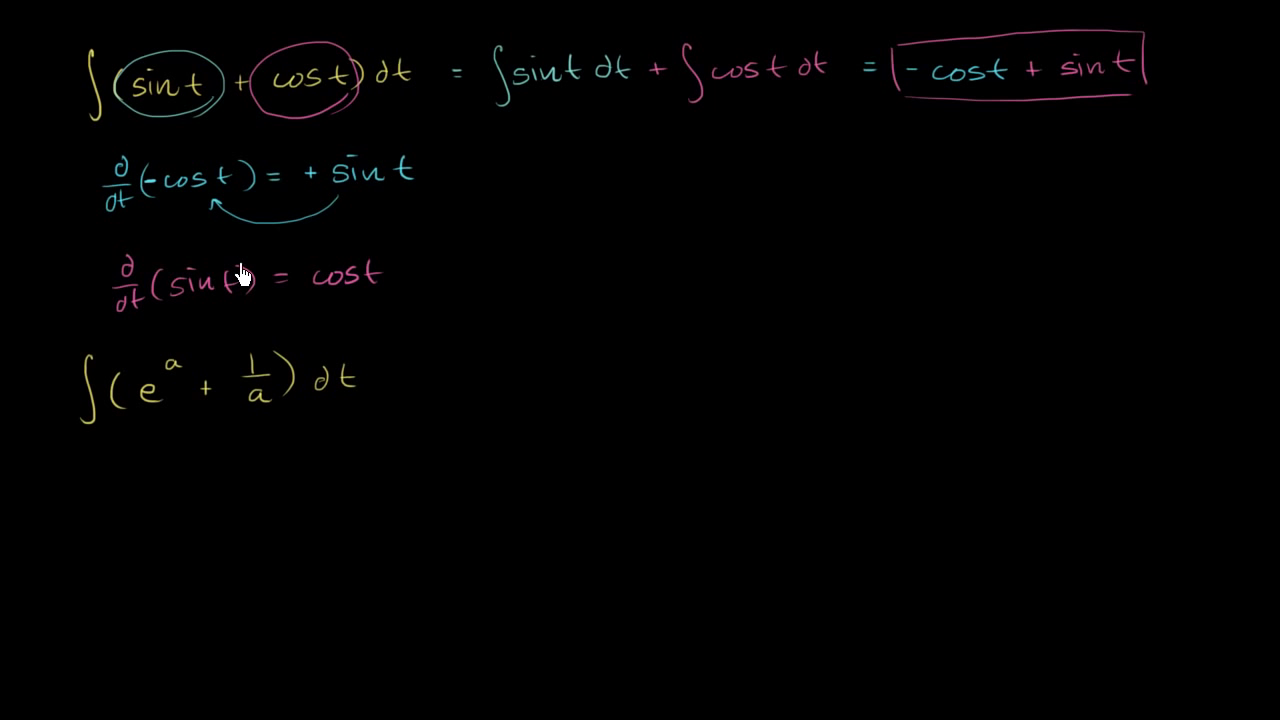 ∫(sin t + cos t) dt = ∫sin t dt + ∫cos t dt = -cos t + sin t
d/dt(-cos t) = + sin t
d/dt(sin t) = cos t
∫(e^a + 1/a) dt